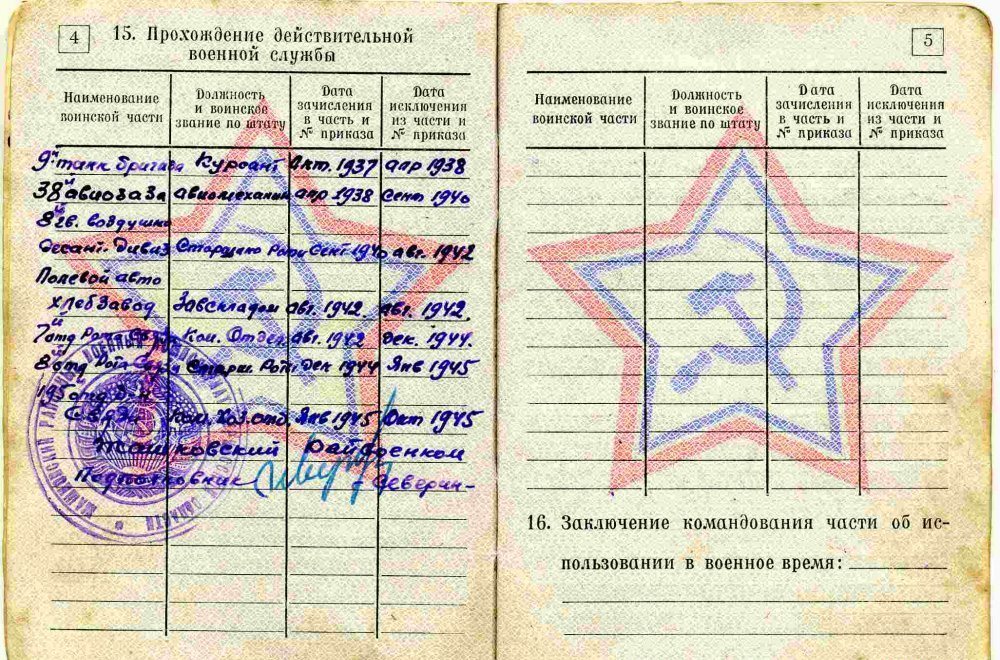 4
15. Прохождение действительной
военной службы
Наименование
воинской части
Должность
и воинское
звание по штату
Дата
зачисления
в часть и
№ приказа
Дата
исключения
из части и
№ приказа
9й танк бригада Курсант Окт. 1937 апр 1938
38й авиобаза авиомеханик апр 1938 Сент 1940
8й гв. воздушно
десант. дивиз Старшина Роты Сент 1940 авг. 1942
Полевой авто
хлебзавод Завскладом авг. 1942. авг. 1942.
7й отд Рот Ком. Отдел авг. 1942 дек. 1944.
8й отд Рота Связи Старш Роты дек 1944 Янв 1945
195 отд б-н
Связи Ком. Хоз. отд Янв 1945 Окт 1945
Райвоенком
Подполковник Северин
5
Наименование
воинской части
Должность
и воинское
звание по штату
Дата
зачисления
в часть и
№ приказа
Дата
исключения
из части и
№ приказа
16. Заключение командования части об ис-
пользовании в военное время: